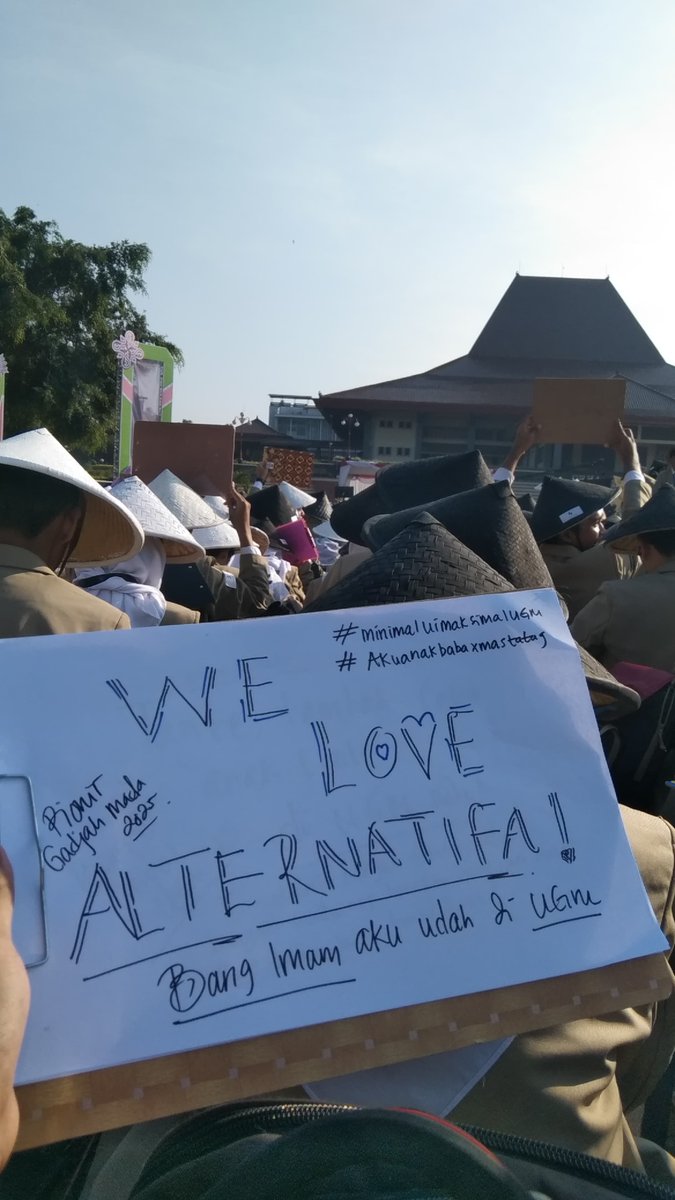 #minimaluimaksimalUGM
# Akuanakbabaxmastatag
WE
LOVE
Gadjah Mada
2025.
ALTERNATIFA!
Bang Imam aku udah di UGM